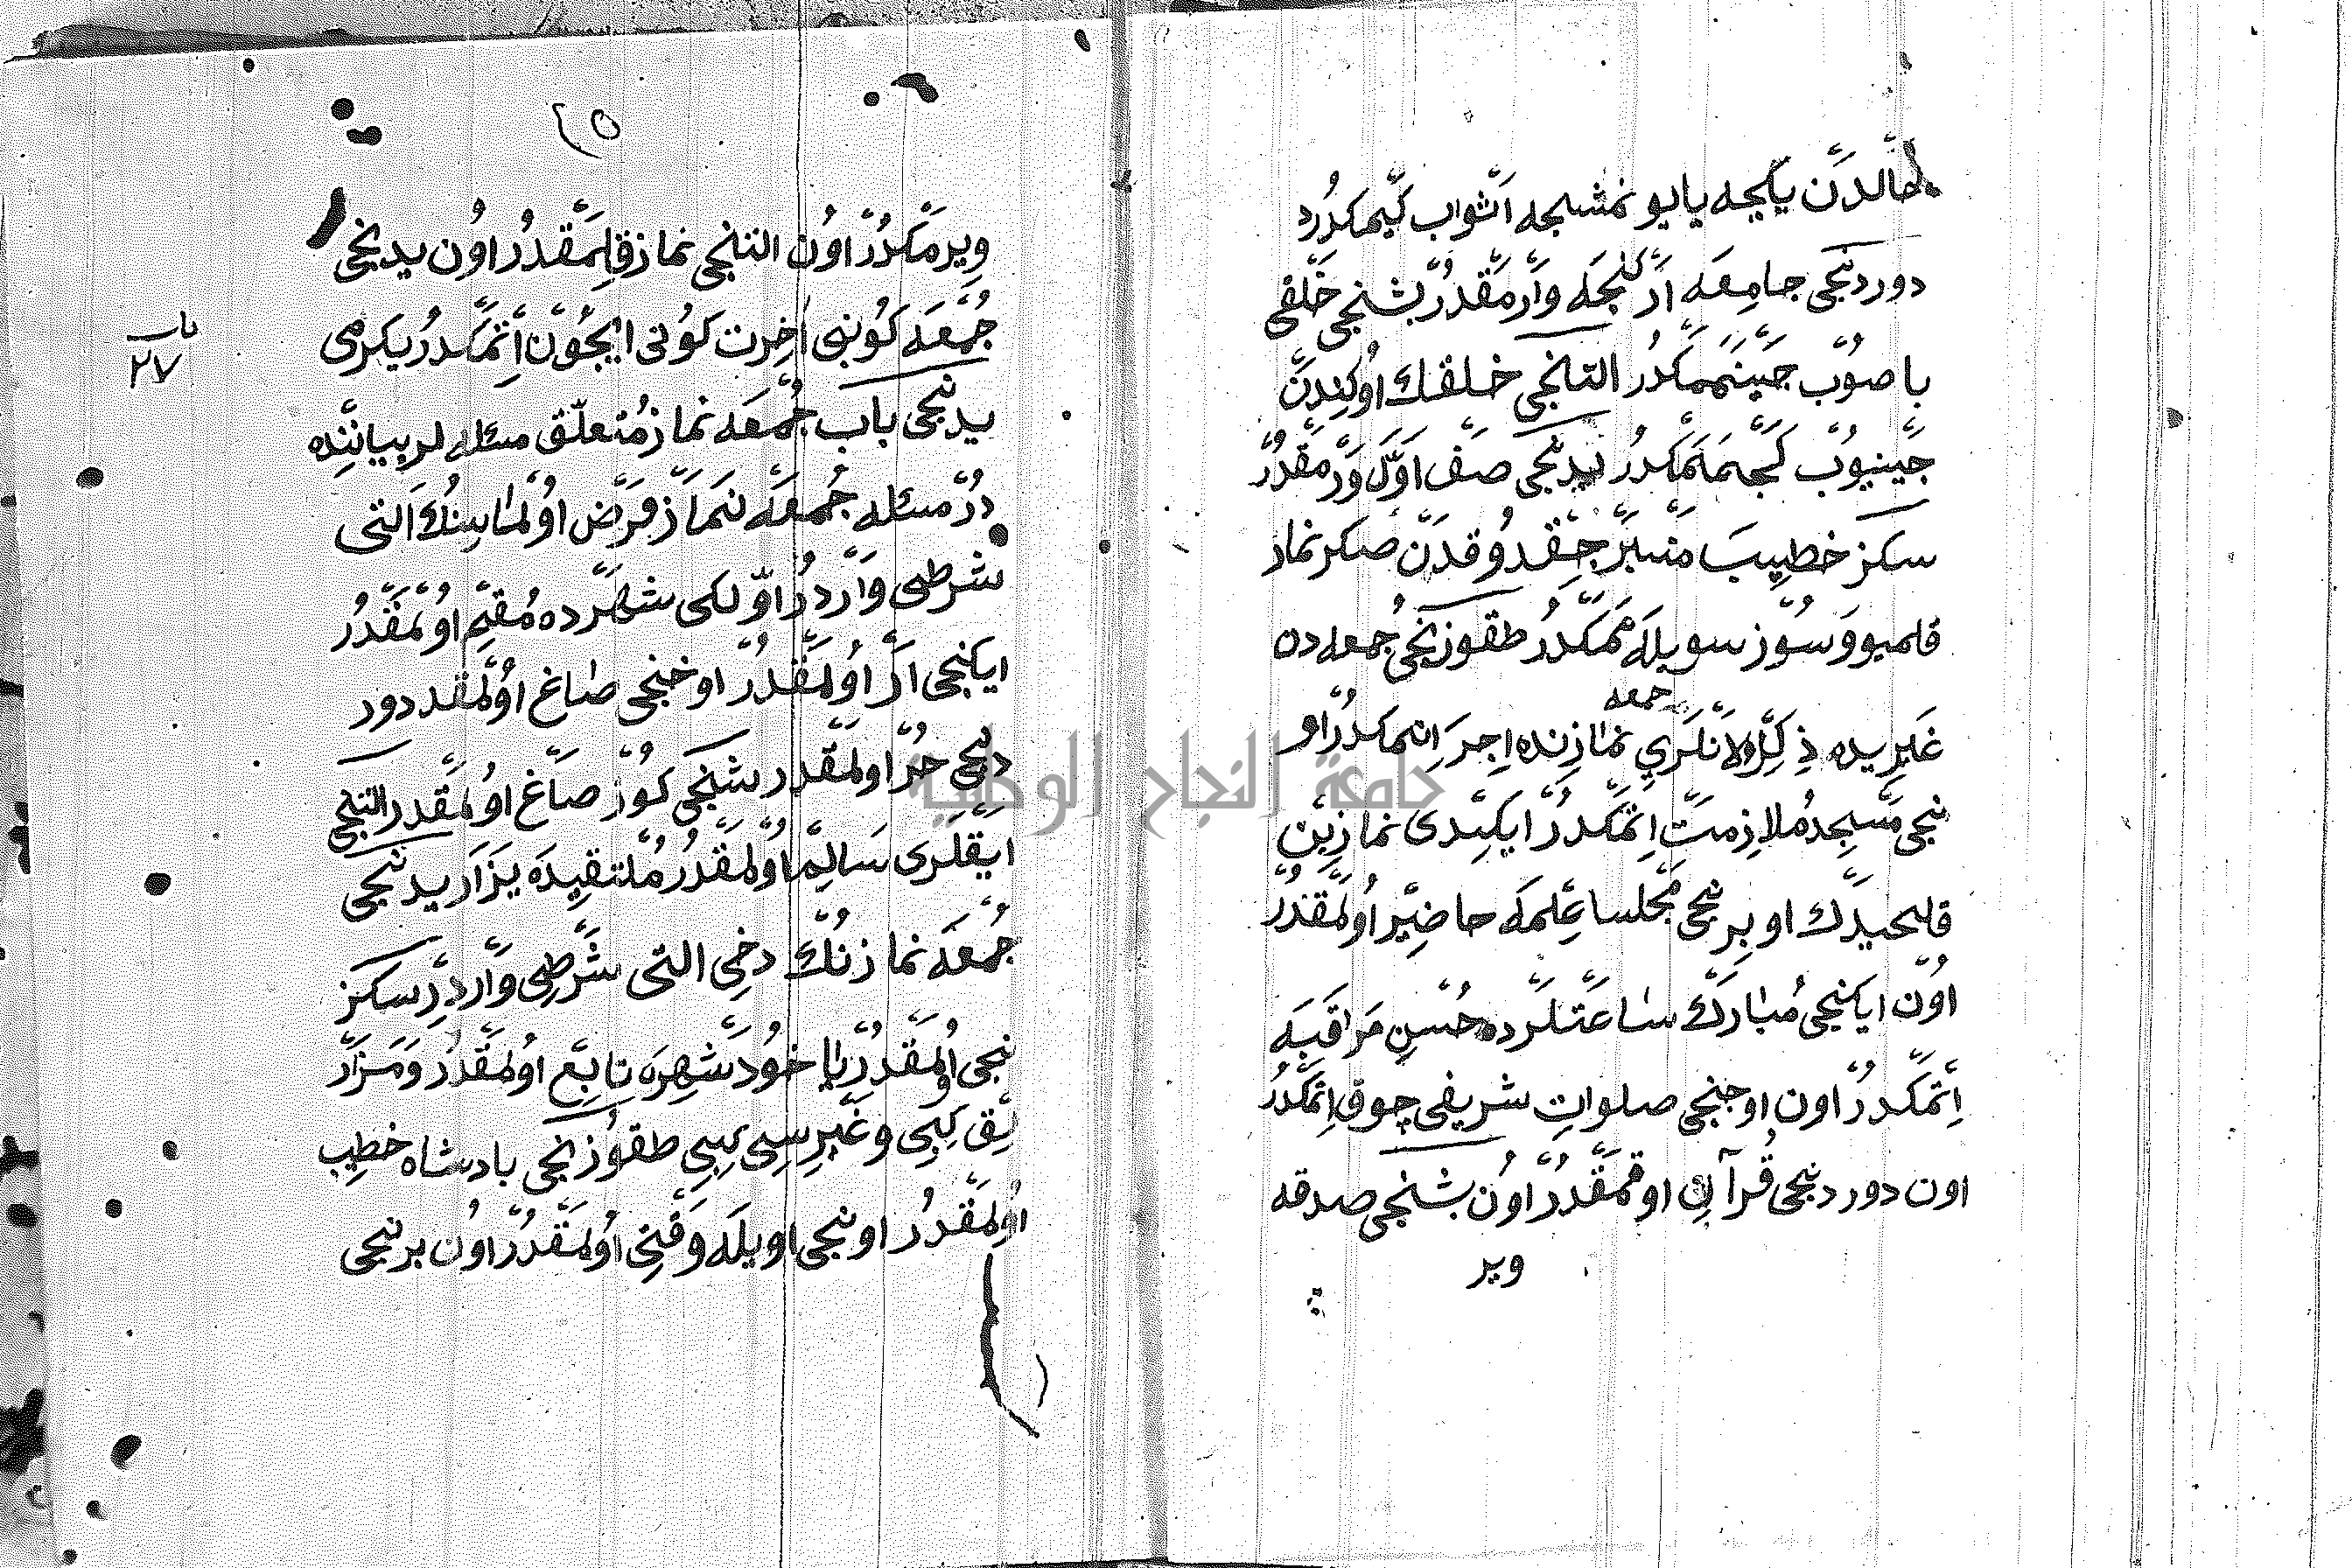 حالدن يكيجه يا يو نمشجه اثواب كيمكدر
دوردنجى جامعه اركنجه وارمقدر بشنجى خلقى
باصوب جينممكدر التنجى خلقك اوكندن
جينيوب كجممكدر يدنجى صف اول ورمقدر
سكز خطيب منبر جقدوقدن صكر نماز
قلميو وسوز سويلمكدر طقوزنجى جمعه ده
جمعه
غيريده ذكر اولانلرى نمازنده اجر اتمكدر او
نجى مسجد ملازمت اتمكدر ايكندى نمازين
قلنجيدك او برنجى مجلسا علمه حاضر اولمقدر
اون ايكنجى مبارك ساعتلرده حسن مراقبه
اتمكدر اون اوجنجى صلوات شريفى جوق اتمكدر
اون دوردنجى قرآن اوقمقدر اون بشنجى صدقه
وير
٢٥
ويرمكدر اون التنجى نماز قلمقدر اون يدنجى
جمعه كونى اخرت كونى ايجون اتمكدر يكرمى
باب ٢٧
يدنجى باب جمعه نماز متعلق مسئله لر بياننده
در مسئله جمعه نماز فرض اولماسنك التى
شرطى واردر اولكى شهرده مقيم اولمقدر
ايكنجى ار اولمقدر اوجنجى صاغ اولمقدر دور
دنجى حر اولمقدر بشنجى كوز صاغ اولمقدر التنجى
ايقلرى سالم اولمقدر ملتقيده يزار يدنجى
جمعه نمازنك دخى التى شرطى واردر سكز
نجى اولمقدر يا خود شهره تابع اولمقدر ومزار
لق كبى وغيرسى كبى طقوزنجى بادشاه خطيب
اولمقدر اونجى اويله وقتى اولمقدر اون برنجى
جامعة النجاح الوطنية